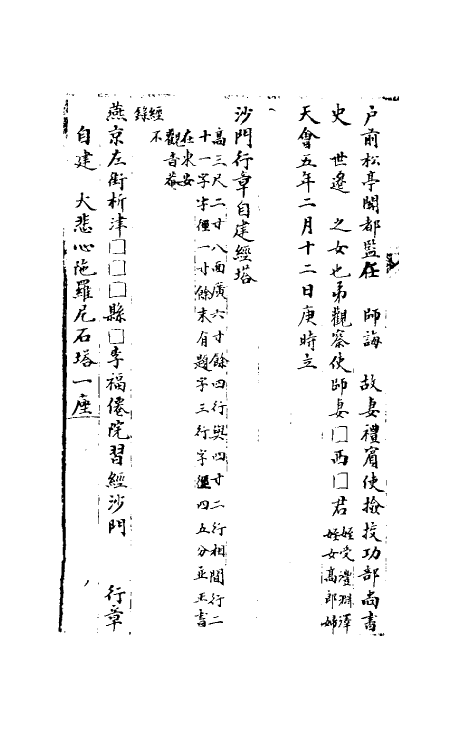 户前松亭關都監任　師誨　故妻禮賓使撿挍功部尚書
史　世遼　之女也弟觀察使師妻□西□君
姪受澧州澤
姪女髙郎婦
天會五年二月十二日庚時立
沙門行章自建經塔
髙三尺二寸八面廣六寸餘四行與四寸二行相間行二
十一字字徑一寸餘末有題字三行字徑四五分並正書
在東安
觀音菴
經不
錄
燕京左街析津□□□縣□李福僊院習經沙門　行章
自建　大悲心陁羅尼石塔一座